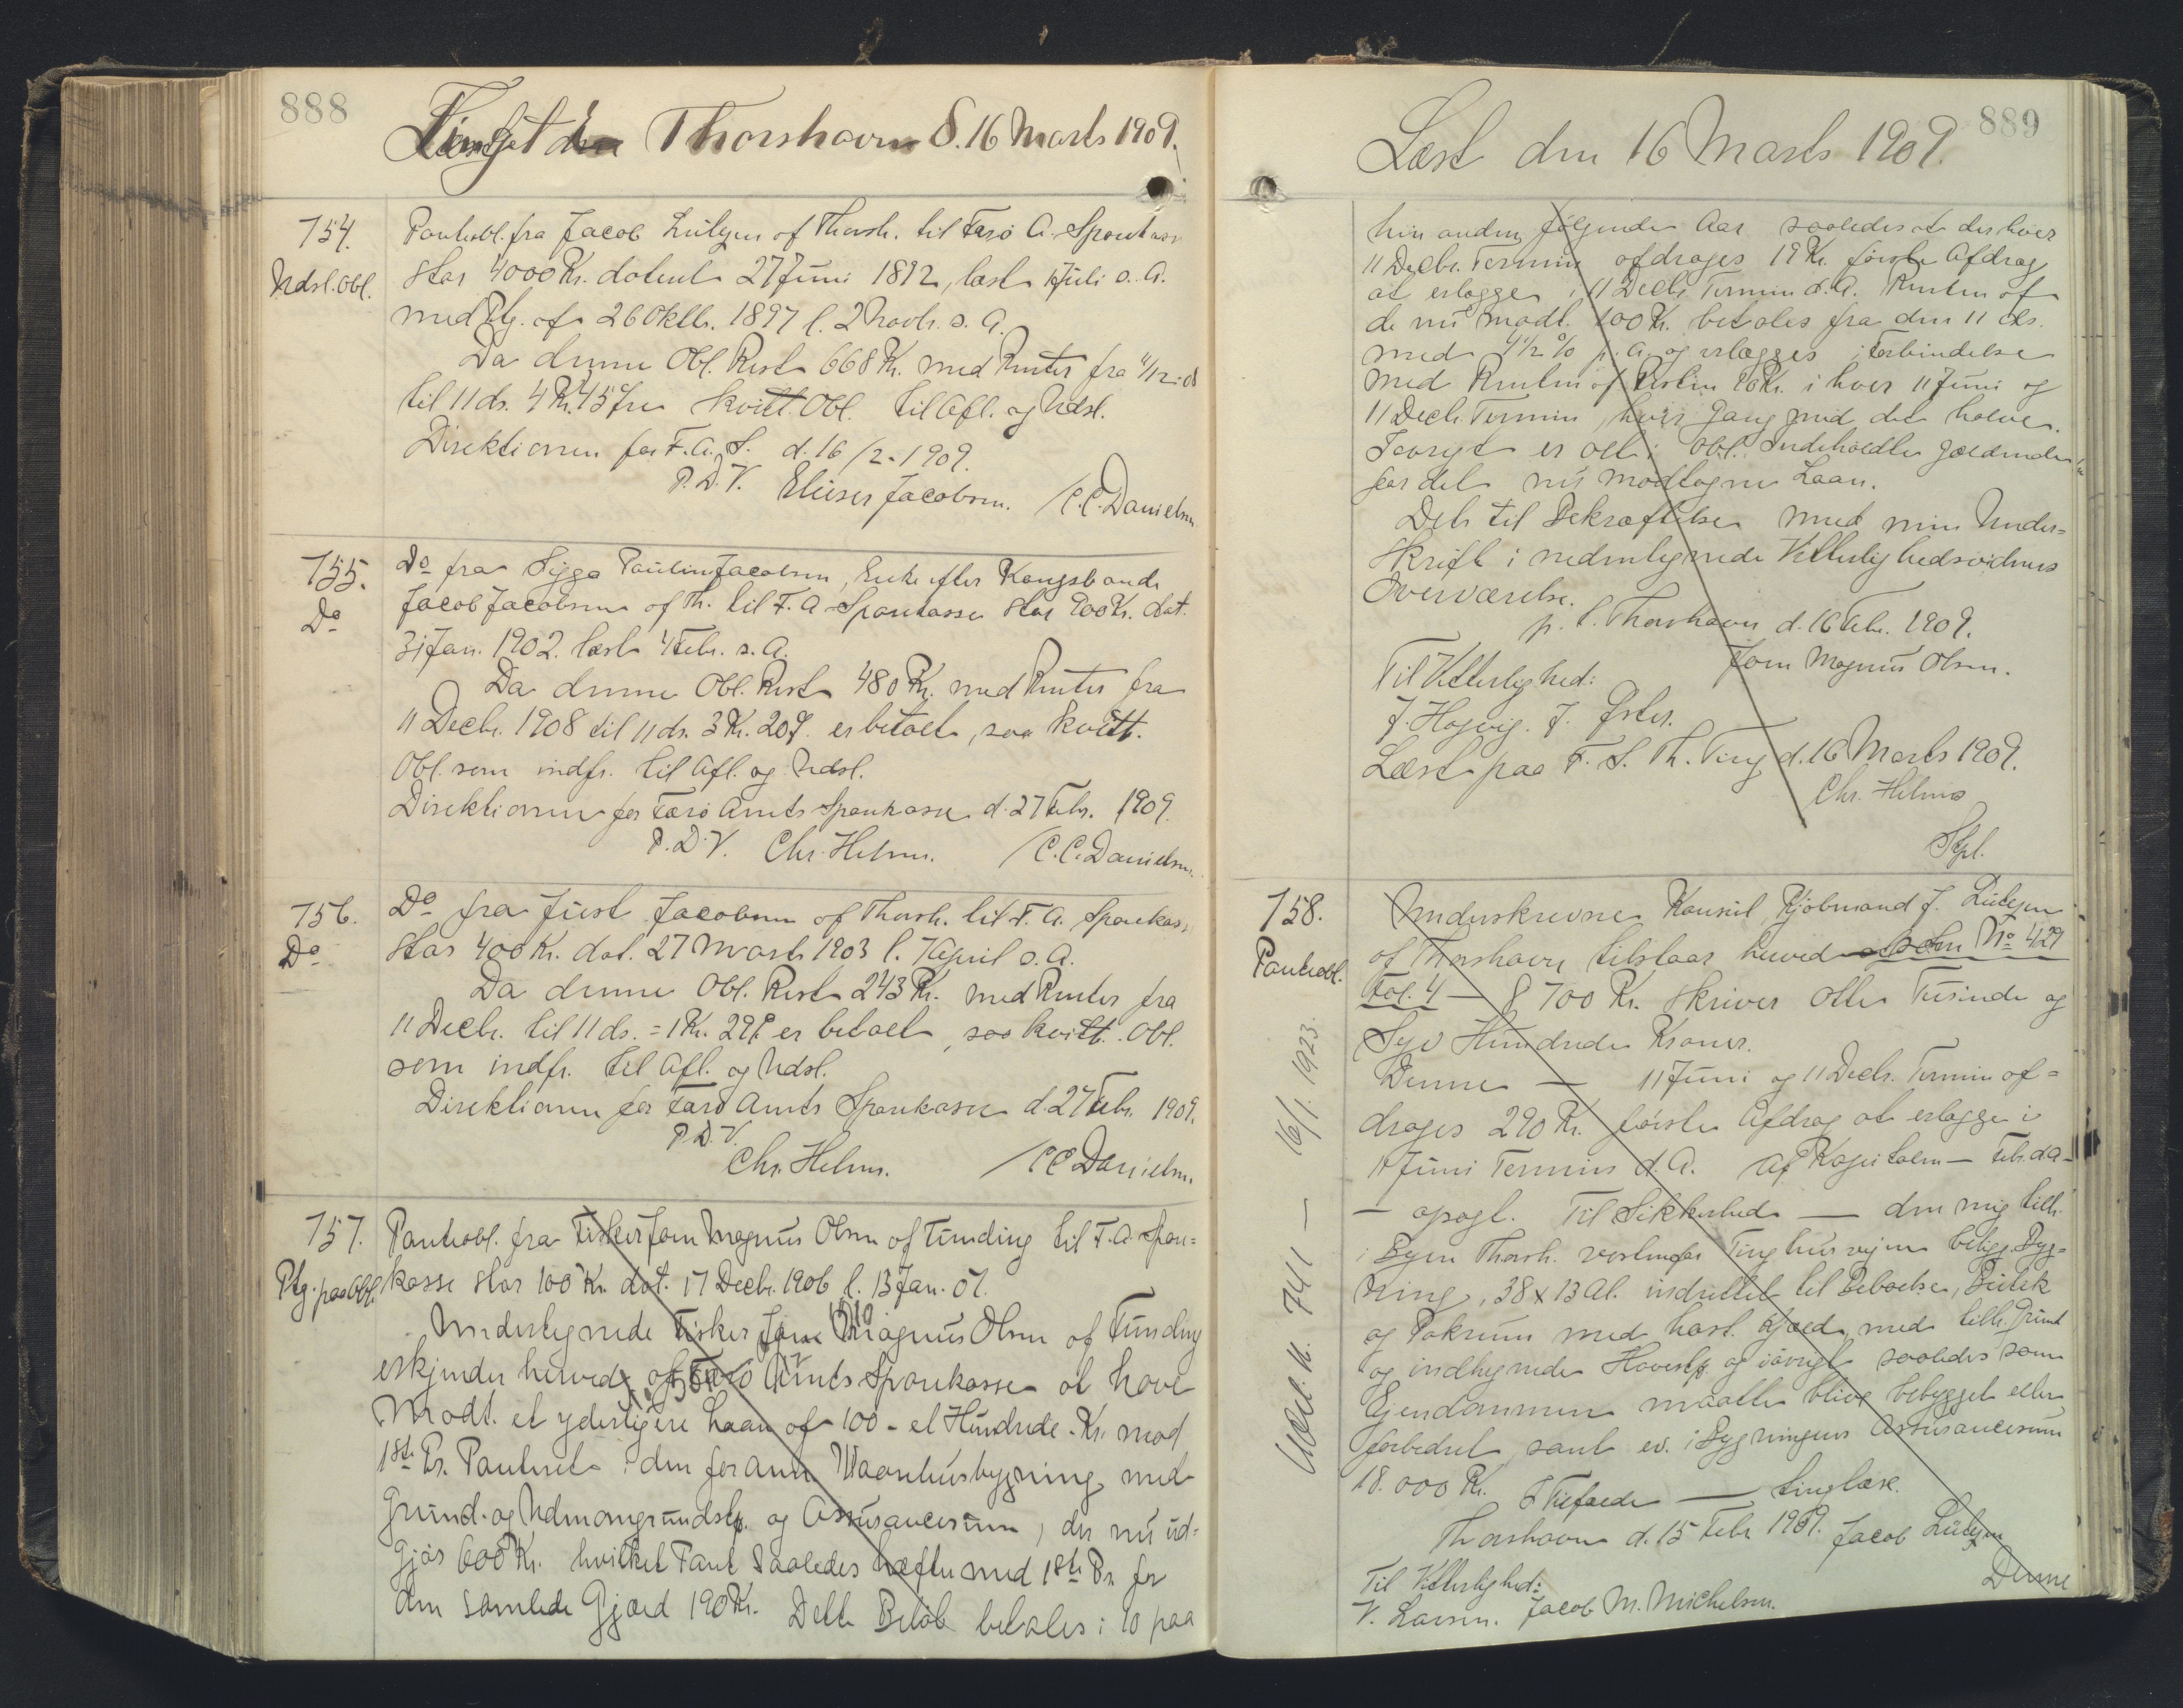 888
Tinget Thorshavn d. 16 Marts 1909.
754.
Udsl. Obl.
Panteobl. fra Jacob Lützen af Thorsh. til Færø A. Sparekasse
stor 4000 Kr. dateret 27 Juni 1892, læst Juli s. A.
med Ptg. af 26 Oktbr. 1897 l. 2 Novbr. s. A.
Da denne Obl. Rest 668 Kr. med Renter fra 11/12 08
til 11 ds. 4 Kr. 45 Øre kvitt. Obl. til Afl. og Udsl.
Direktionen for F. A. S. d. 16/2 - 1909.
P. D. V. Elieser Jacobsen. / C. C. Danielsen
755.
Do
Do fra Sigga Pauline Jacobsen, Enke efter Kongsbonde
Jacob Jacobsen af Th. til F. A. Sparekasse stor 900 Kr. dat.
31 Jan. 1902. læst 4 Febr. s. A.
Da denne Obl. Rest 480 Kr. med Renter fra
11 Decbr. 1908 til 11 ds. 3 Kr. 20 Ø. er betalt, saa kvitt.
Obl. som indfr. til Afl. og Udsl.
Direktionen for Færø Amts Sparekasse d. 27 Febr. 1909.
P. D. V. Chr. Helms. / C. C. Danielsen.
756.
Do
Do fra Just Jacobsen af Thorsh. til F. A. Sparekasse
stor 400 Kr. dat. 27 Marts 1903 l. 7 April s. A.
Da denne Obl. Rest 243 Kr. med Renter fra
11 Decbr. til 11 ds. = 1 Kr. 29 Ø er betalt, saa kvitt. Obl.
som indfr. til Afl. og Udsl.
Direktionen for Færø Amts Sparekasse d. 27 Febr. 1909.
P. D. V.
Chr. Helms. / C C Danielsen.
757.
Ptg. paa Obl.
Panteobl. fra Fisker Joen Magnus Olsen af Funding til F. A. Spare=
kasse stor 100 Kr. dat. 17 Decbr. 1906 l. 13 Jan. 07.
Undertegnede Fisker Joen Magnus Olsen af Funding
erkjender herved af Færø Amts Sparekasse at have
modt. et yderligere Laan af 100 - et Hundrede - Kr. mod
1ste Pr. Panteret i den foran Vaanehusbygning med
Grund- og Udmarksgrundstk. og Assurancesum, der nu ud=
gjør 600 Kr. hvilket Pant saaledes hæfter med 1ste Pr. for
den samlede Gjæld 190 Kr. Dette Beløb betales i 10 paa
889
Læst den 16 Marts 1909.
hin anden følgende Aar saaledes at der hver
11 Decbr. Termin afdrages 19 Kr. første Afdrag
at erlægge i 11 Decbr Termin d. A. Renten af
de nu modt. 100 Kr. betales fra den 11 ds.
med 4 1/2 % p. A. og erlægges i Forbindelse
med Renten af Restен 90 Kr. i hver 11 Juni og
11 Decbr. Termin, hver Gang med det halve.
Iøvrigt er alt i Obl. Indeholdte gældende
for det nu modtagne Laan.
Dets til Bekræftelse med min Under=
skrift i nedentegnede Vitterlighedsvidners
Overværelse.
p. t. Thorshavn d. 16 Febr. 1909.
Joen Magnus Olsen.
Til Vitterlighed:
J. Hojvig. J. Øster.
Læst paa F. S. Th. Ting d. 16 Marts 1909.
Chr. Helms
Stpl.
758.
Panteobl.
Underskrevne Konsul Kjøbmand J. Lützen
af Thorshavn tilstaar herved No 429
Fol. 4 — 8700 Kr. skriver Otte Tusinde og
Syv Hundrede Kroner.
Denne — 11 Juni og 11 Decbr. Termin af=
drages 290 Kr. første Afdrag at erlægge i
11 Juni Termin d. A. Af Kapitalen — Febr. d A —
— opsgt. Til Sikkerhed — den mig tilh.
i Byen Thorsh. vestenfor Tinghusvejen beligg. Byg=
ning, 38 x 13 Al. indrettet til Beboelse, Butik
og Pakrum med Kjæld. med tilh. Grund
og indhegnede Havestk. og iøvrigt saaledes som
Ejendommen maatte blive bebygget eller
forbedret, samt ev. i Bygningens Assurancesum
18.000 Kr. I Tilfælde — tinglæse.
Thorshavn d. 15 Febr 1909. Jacob Lützen
Til Vitterlighed:
V. Larsen. Jacob M. Michelsen.
Denne
Udsl. N. 741 — 16/1. 1923.